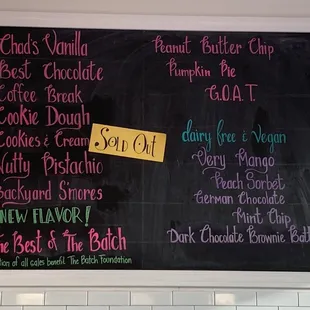 Chad's Vanilla
Best Chocolate
Coffee Break
Cookie Dough
Cookies & Cream
Nutty Pistachio
Backyard S'mores
NEW FLAVOR!
The Best of The Batch
tion of all sales benefit The Batch Foundation
Sold Out
Peanut Butter Chip
Pumpkin Pie
G.O.A.T.
dairy free & Vegan
Very Mango
Peach Sorbet
German Chocolate
Mint Chip
Dark Chocolate Brownie Batt